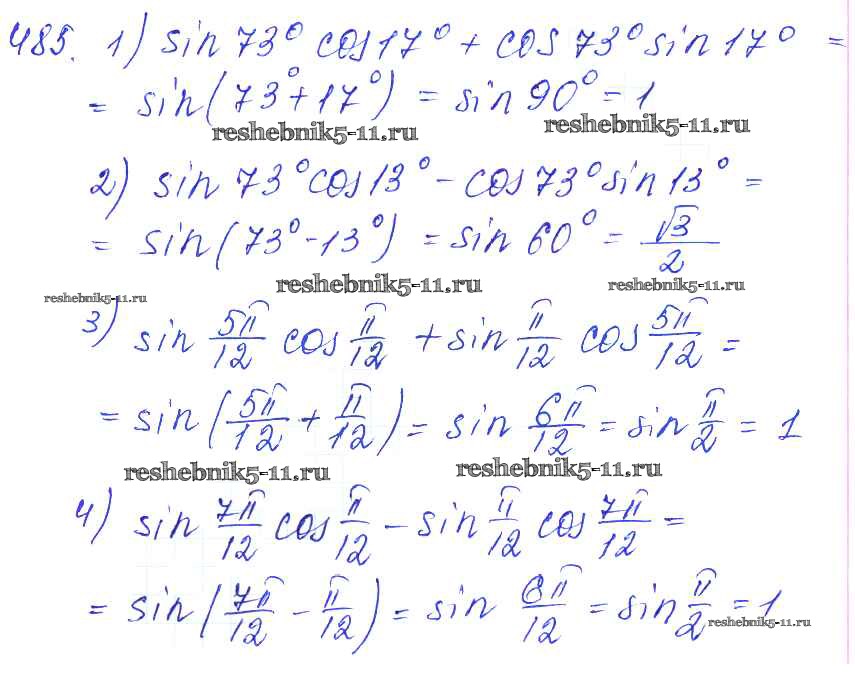 485. 1) sin 73° cos 17° + cos 73° sin 17° =
= sin(73° + 17°) = sin 90° = 1
reshebnik5-11.ru reshebnik5-11.ru
2) sin 73° cos 13° - cos 73° sin 13° =
= sin(73° - 13°) = sin 60° = √3/2
reshebnik5-11.ru reshebnik5-11.ru reshebnik5-11.ru
3) sin 5π/12 cos π/12 + sin π/12 cos 5π/12 =
= sin(5π/12 + π/12) = sin 6π/12 = sin π/2 = 1
reshebnik5-11.ru reshebnik5-11.ru
4) sin 7π/12 cos π/12 - sin π/12 cos 7π/12 =
= sin(7π/12 - π/12) = sin 6π/12 = sin π/2 = 1
reshebnik5-11.ru